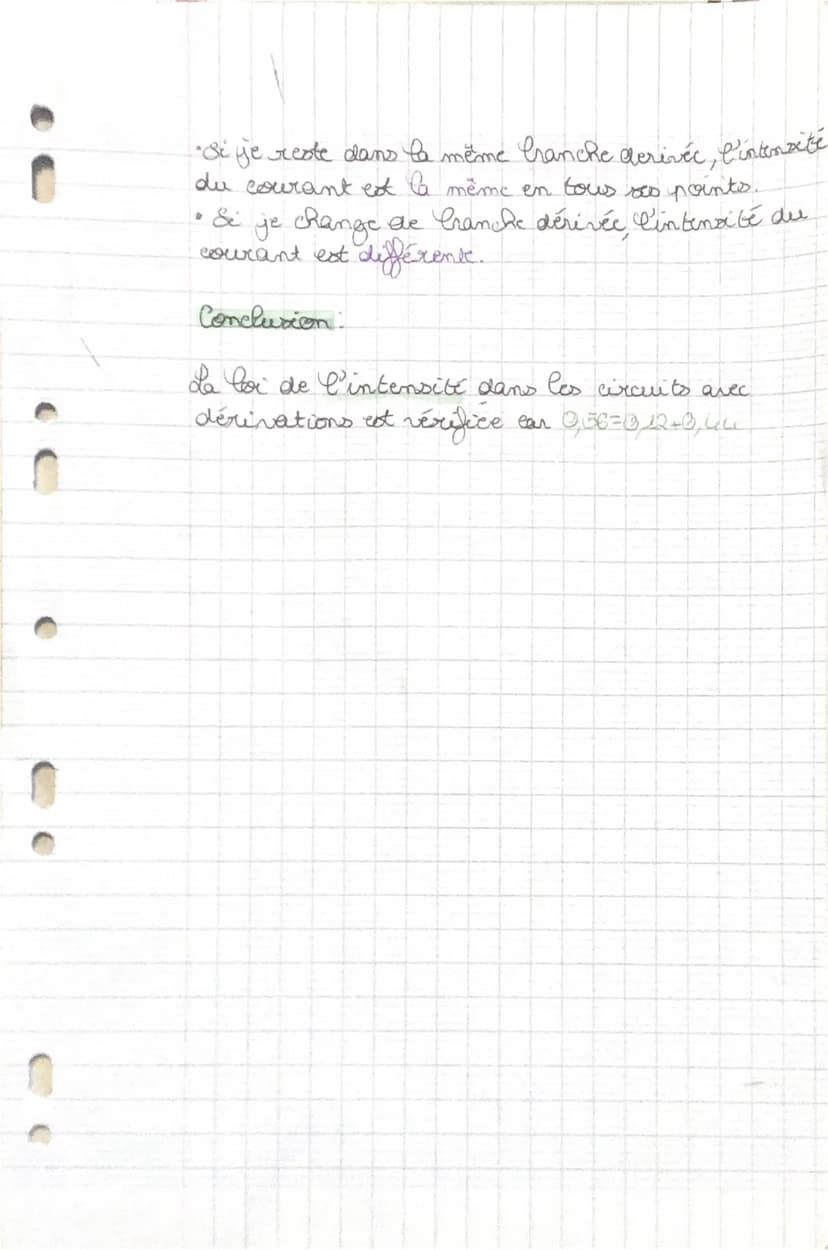 • Si je reste dans la même branche derivée, l'intensité
du courant est la même en tous ses points.
• Si je change de branche dérivée, l'intensité du
courant est différente.
Conclusion:
La loi de l'intensité dans les circuits avec
dérivations est vérifiée car 0,56=0,12+0,44